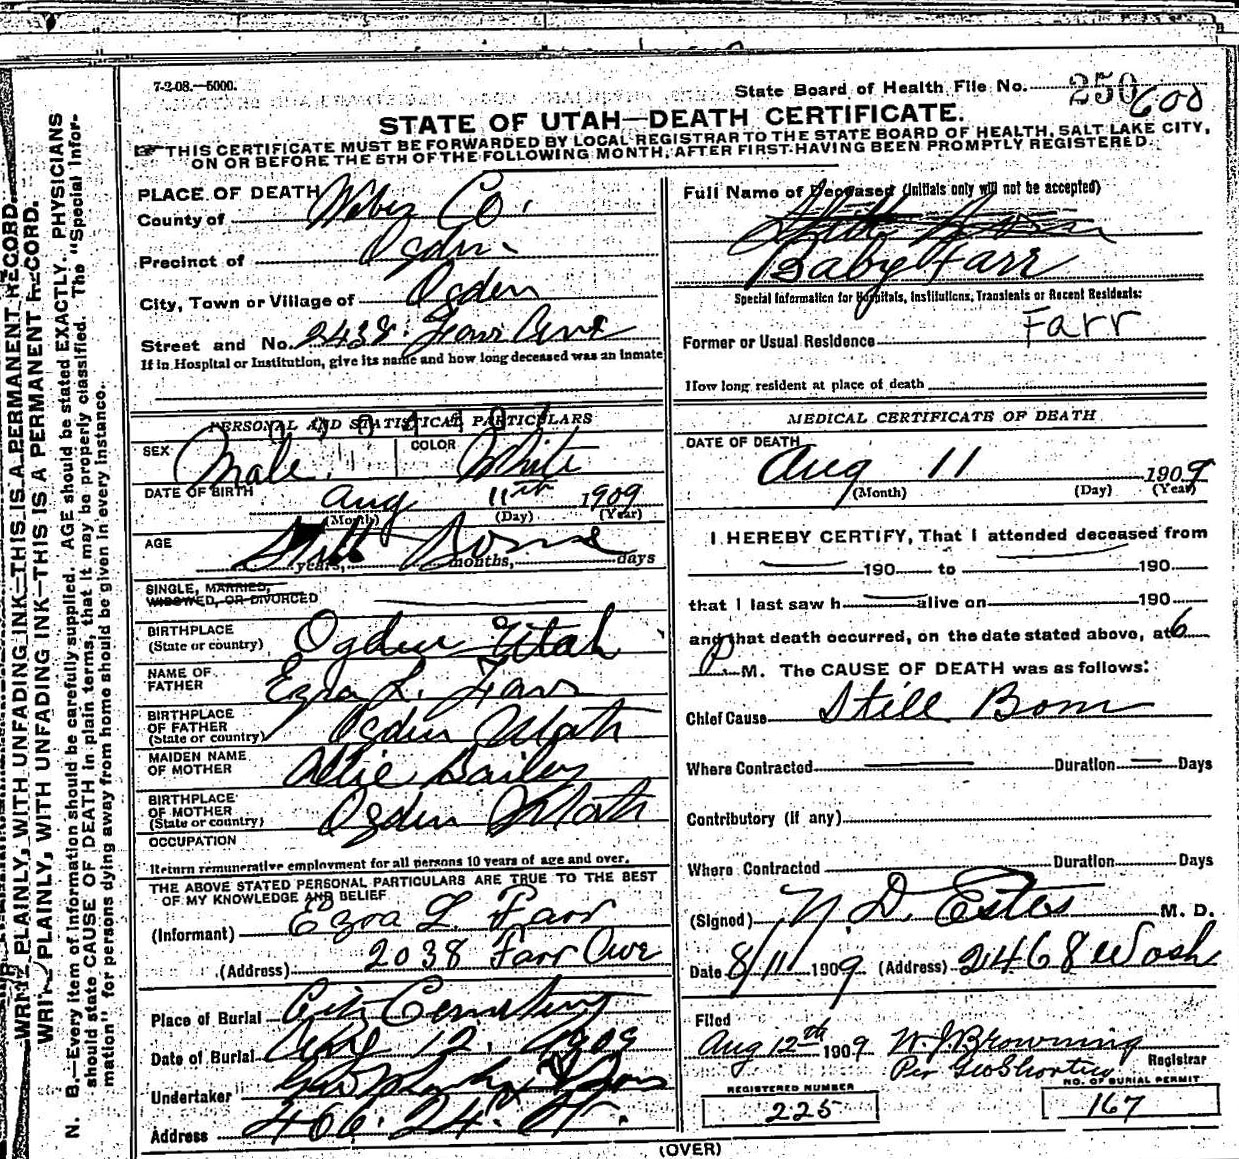 7-2-08.—5000.
State Board of Health File No. 250 600
STATE OF UTAH—DEATH CERTIFICATE.
THIS CERTIFICATE MUST BE FORWARDED BY LOCAL REGISTRAR TO THE STATE BOARD OF HEALTH, SALT LAKE CITY,
ON OR BEFORE THE 5TH OF THE FOLLOWING MONTH, AFTER FIRST HAVING BEEN PROMPTLY REGISTERED.
PLACE OF DEATH
County of Weber Co.
Precinct of Ogden
City, Town or Village of Ogden
Street and No. 2438 Farr Ave
If in Hospital or Institution, give its name and how long deceased was an inmate
PERSONAL AND STATISTICAL PARTICULARS
SEX Male. COLOR White
DATE OF BIRTH Aug 11th 1909
(Month) (Day) (Year)
AGE Still Born
years, months, days
SINGLE, MARRIED,
WIDOWED, OR DIVORCED
BIRTHPLACE
(State or country) Ogden Utah
NAME OF
FATHER Ezra L. Farr
BIRTHPLACE
OF FATHER
(State or country) Ogden Utah
MAIDEN NAME
OF MOTHER Bailey
BIRTHPLACE
OF MOTHER
(State or country) Ogden Utah
OCCUPATION
Return remunerative employment for all persons 10 years of age and over.
THE ABOVE STATED PERSONAL PARTICULARS ARE TRUE TO THE BEST
OF MY KNOWLEDGE AND BELIEF
(Informant) Ezra L. Farr
(Address) 2038 Farr Ave
Place of Burial City Cemetery
Date of Burial Aug 12. 1909
Undertaker & Sons
Address 406. 24. St.
Full Name of Deceased (Initials only will not be accepted)
Still Born
Baby Farr
Special Information for Hospitals, Institutions, Transients or Recent Residents:
Farr
Former or Usual Residence
How long resident at place of death
MEDICAL CERTIFICATE OF DEATH
DATE OF DEATH
Aug 11 1909
(Month) (Day) (Year)
I HEREBY CERTIFY, That I attended deceased from
190 to 190
that I last saw h alive on 190
and that death occurred, on the date stated above, at 6
P M. The CAUSE OF DEATH was as follows:
Chief Cause Still Born
Where Contracted Duration Days
Contributory (if any)
Where Contracted Duration Days
(Signed) N. D. Estes M. D.
Date 8/11 1909 (Address) 2468 Wash
Filed
Aug 12th 1909 W. J. Browning
Registrar
Per Geo Shorten
REGISTERED NUMBER
225
NO. OF BURIAL PERMIT
167
(OVER)
WRITE PLAINLY, WITH UNFADING INK—THIS IS A PERMANENT RECORD.
WRITE PLAINLY, WITH UNFADING INK—THIS IS A PERMANENT RECORD.
N. B.—Every item of information should be carefully supplied. AGE should be stated EXACTLY. PHYSICIANS
should state CAUSE OF DEATH in plain terms, that it may be properly classified. The "Special Infor-
mation" for persons dying away from home should be given in every instance.